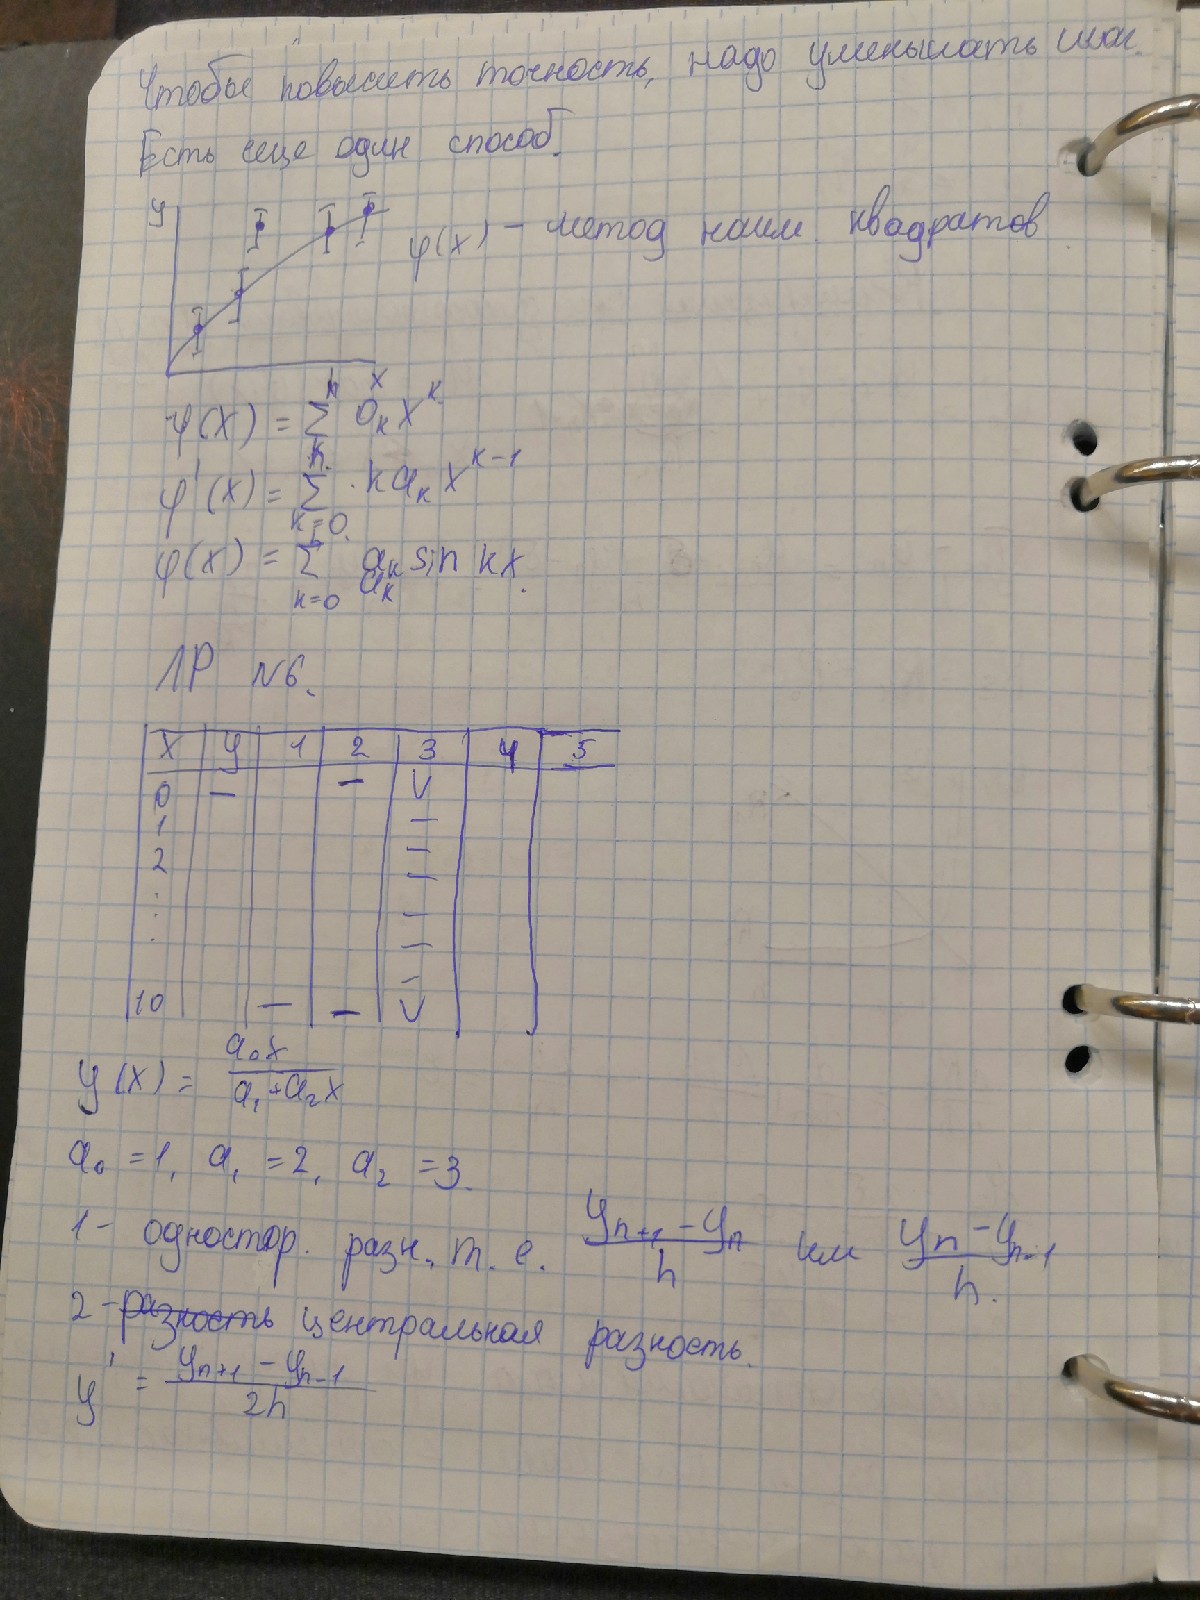 Чтобы повысить точность, надо уменьшать шаг.
Есть еще один способ.
y
φ(x) – метод наим. квадратов
x
φ(x) = Σ^n a_k x^k
φ'(x) = Σ^n_{k=0} · k a_k x^{k-1}
φ(x) = Σ_{k=0} a_k sin kx.
a_k
ЛР N6.
x y 1 2 3 4 5
0 – – V
1 –
2 –
. –
. –
. –
–
10 – – V
y(x) = a_0 x / a_1 + a_2 x
a_0 = 1, a_1 = 2, a_2 = 3.
1 – одностор. разн., т. е. y_{n+1} – y_n / h или y_n – y_{n-1} / h.
2 – разность центральная разность.
y' = y_{n+1} – y_{n-1} / 2h